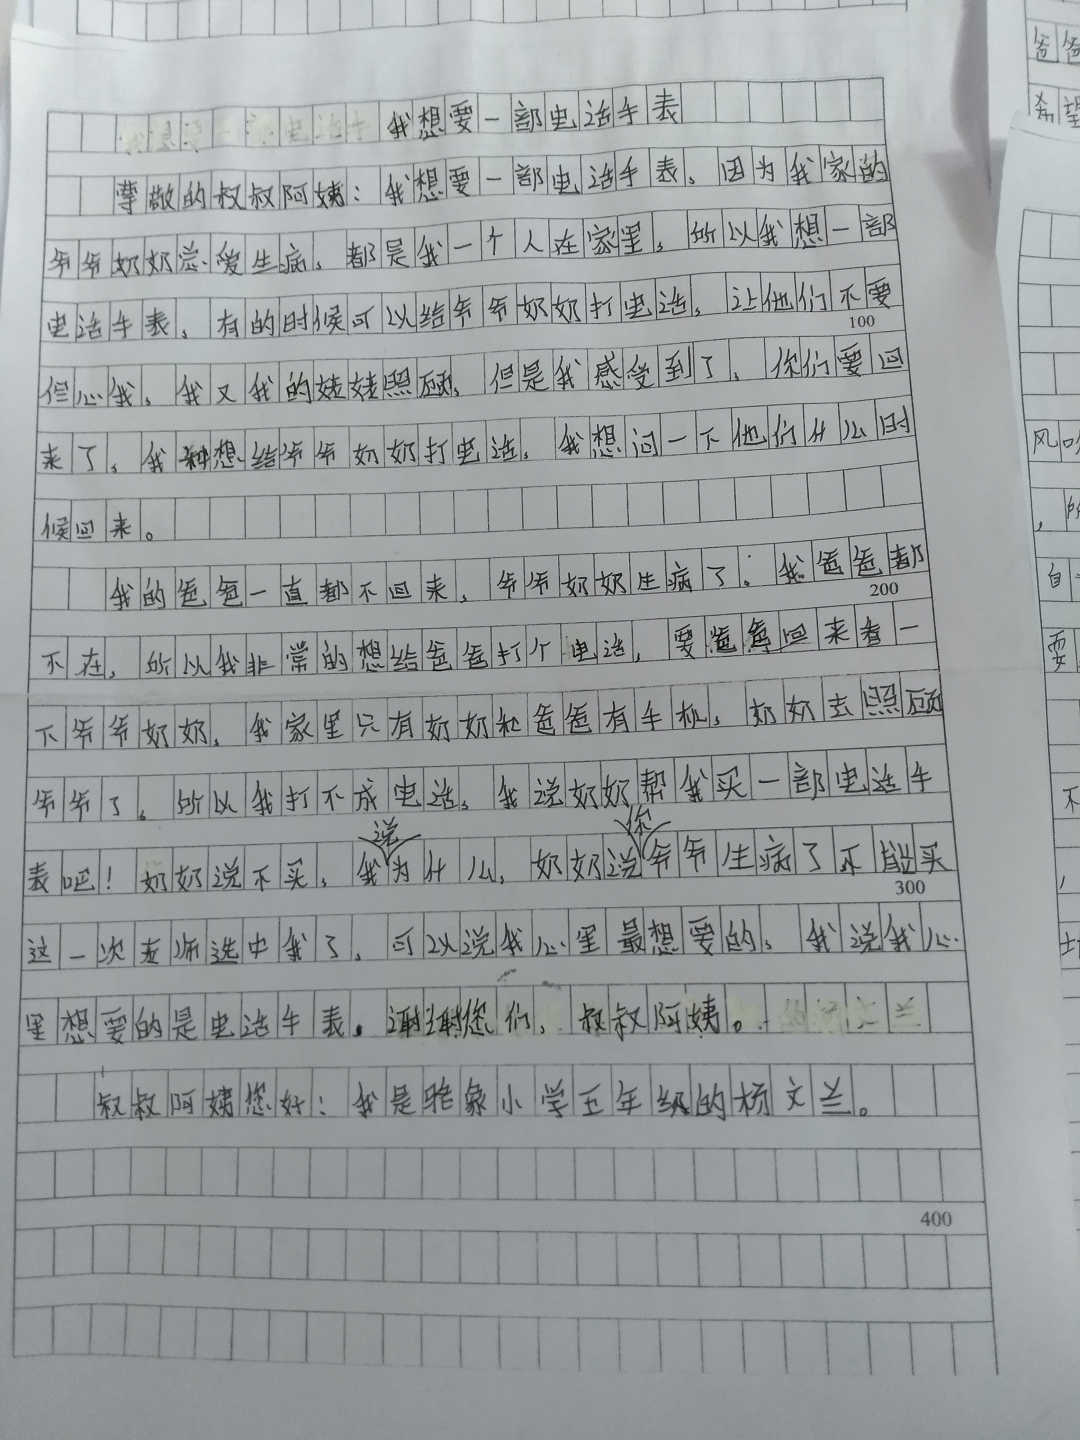 我想要一部电话手表
尊敬的叔叔阿姨：我想要一部电话手表，因为我家的
爷爷奶奶总爱生病，都是我一个人在家里，所以我想一部
电话手表，有的时候可以给爷爷奶奶打电话，让他们不要
100
但心我，我又我的娃娃照顾，但是我感受到了，你们要回
来了，我种想给爷爷奶奶打电话，我想问一下他们什么时
候回来。
我的爸爸一直都不回来，爷爷奶奶生病了．我爸爸都
200
不在，所以我非常的想给爸爸打个电话，要爸爸回来看一
下爷爷奶奶，我家里只有奶奶和爸爸有手机，奶奶去照顾
爷爷了。所以我打不成电话，我说奶奶帮我买一部电话手
表吧！奶奶说不买，我说为什么，奶奶说你爷爷生病了不能买
300
这一次老师选中我了，可以说我心里最想要的，我说我心
里想要的是电话手表。谢谢您们，叔叔阿姨。
叔叔阿姨您好：我是骆象小学五年级的杨文兰。
400
爸爸
希望
风
自
耍
不